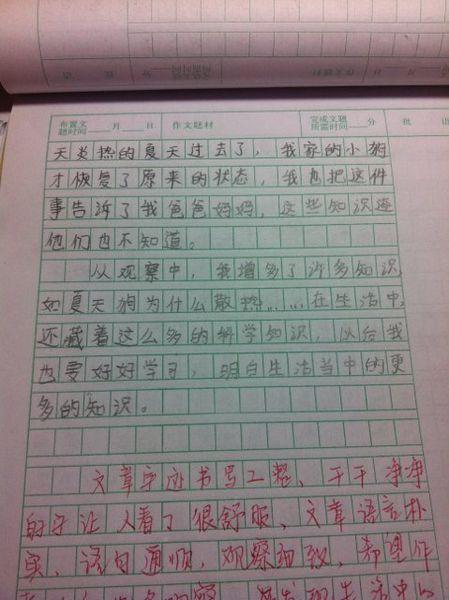 布置文题时间 月 日 作文题材 完成文题所需时间 分 批 语
天炎热的夏天过去了，我家的小狗
才恢复了原来的状态，我也把这件
事告诉了我爸爸妈妈，这些知识连
他们也不知道。
从观察中，我增多了许多知识，
如夏天狗为什么散热……在生活中，
还藏着这么多的科学知识，以后我
也要好好学习，明白生活当中的更
多的知识。
文章字迹书写工整、干干净净
的字让人看了很舒服、文章语言朴
实、语句通顺，观察细致，希望作